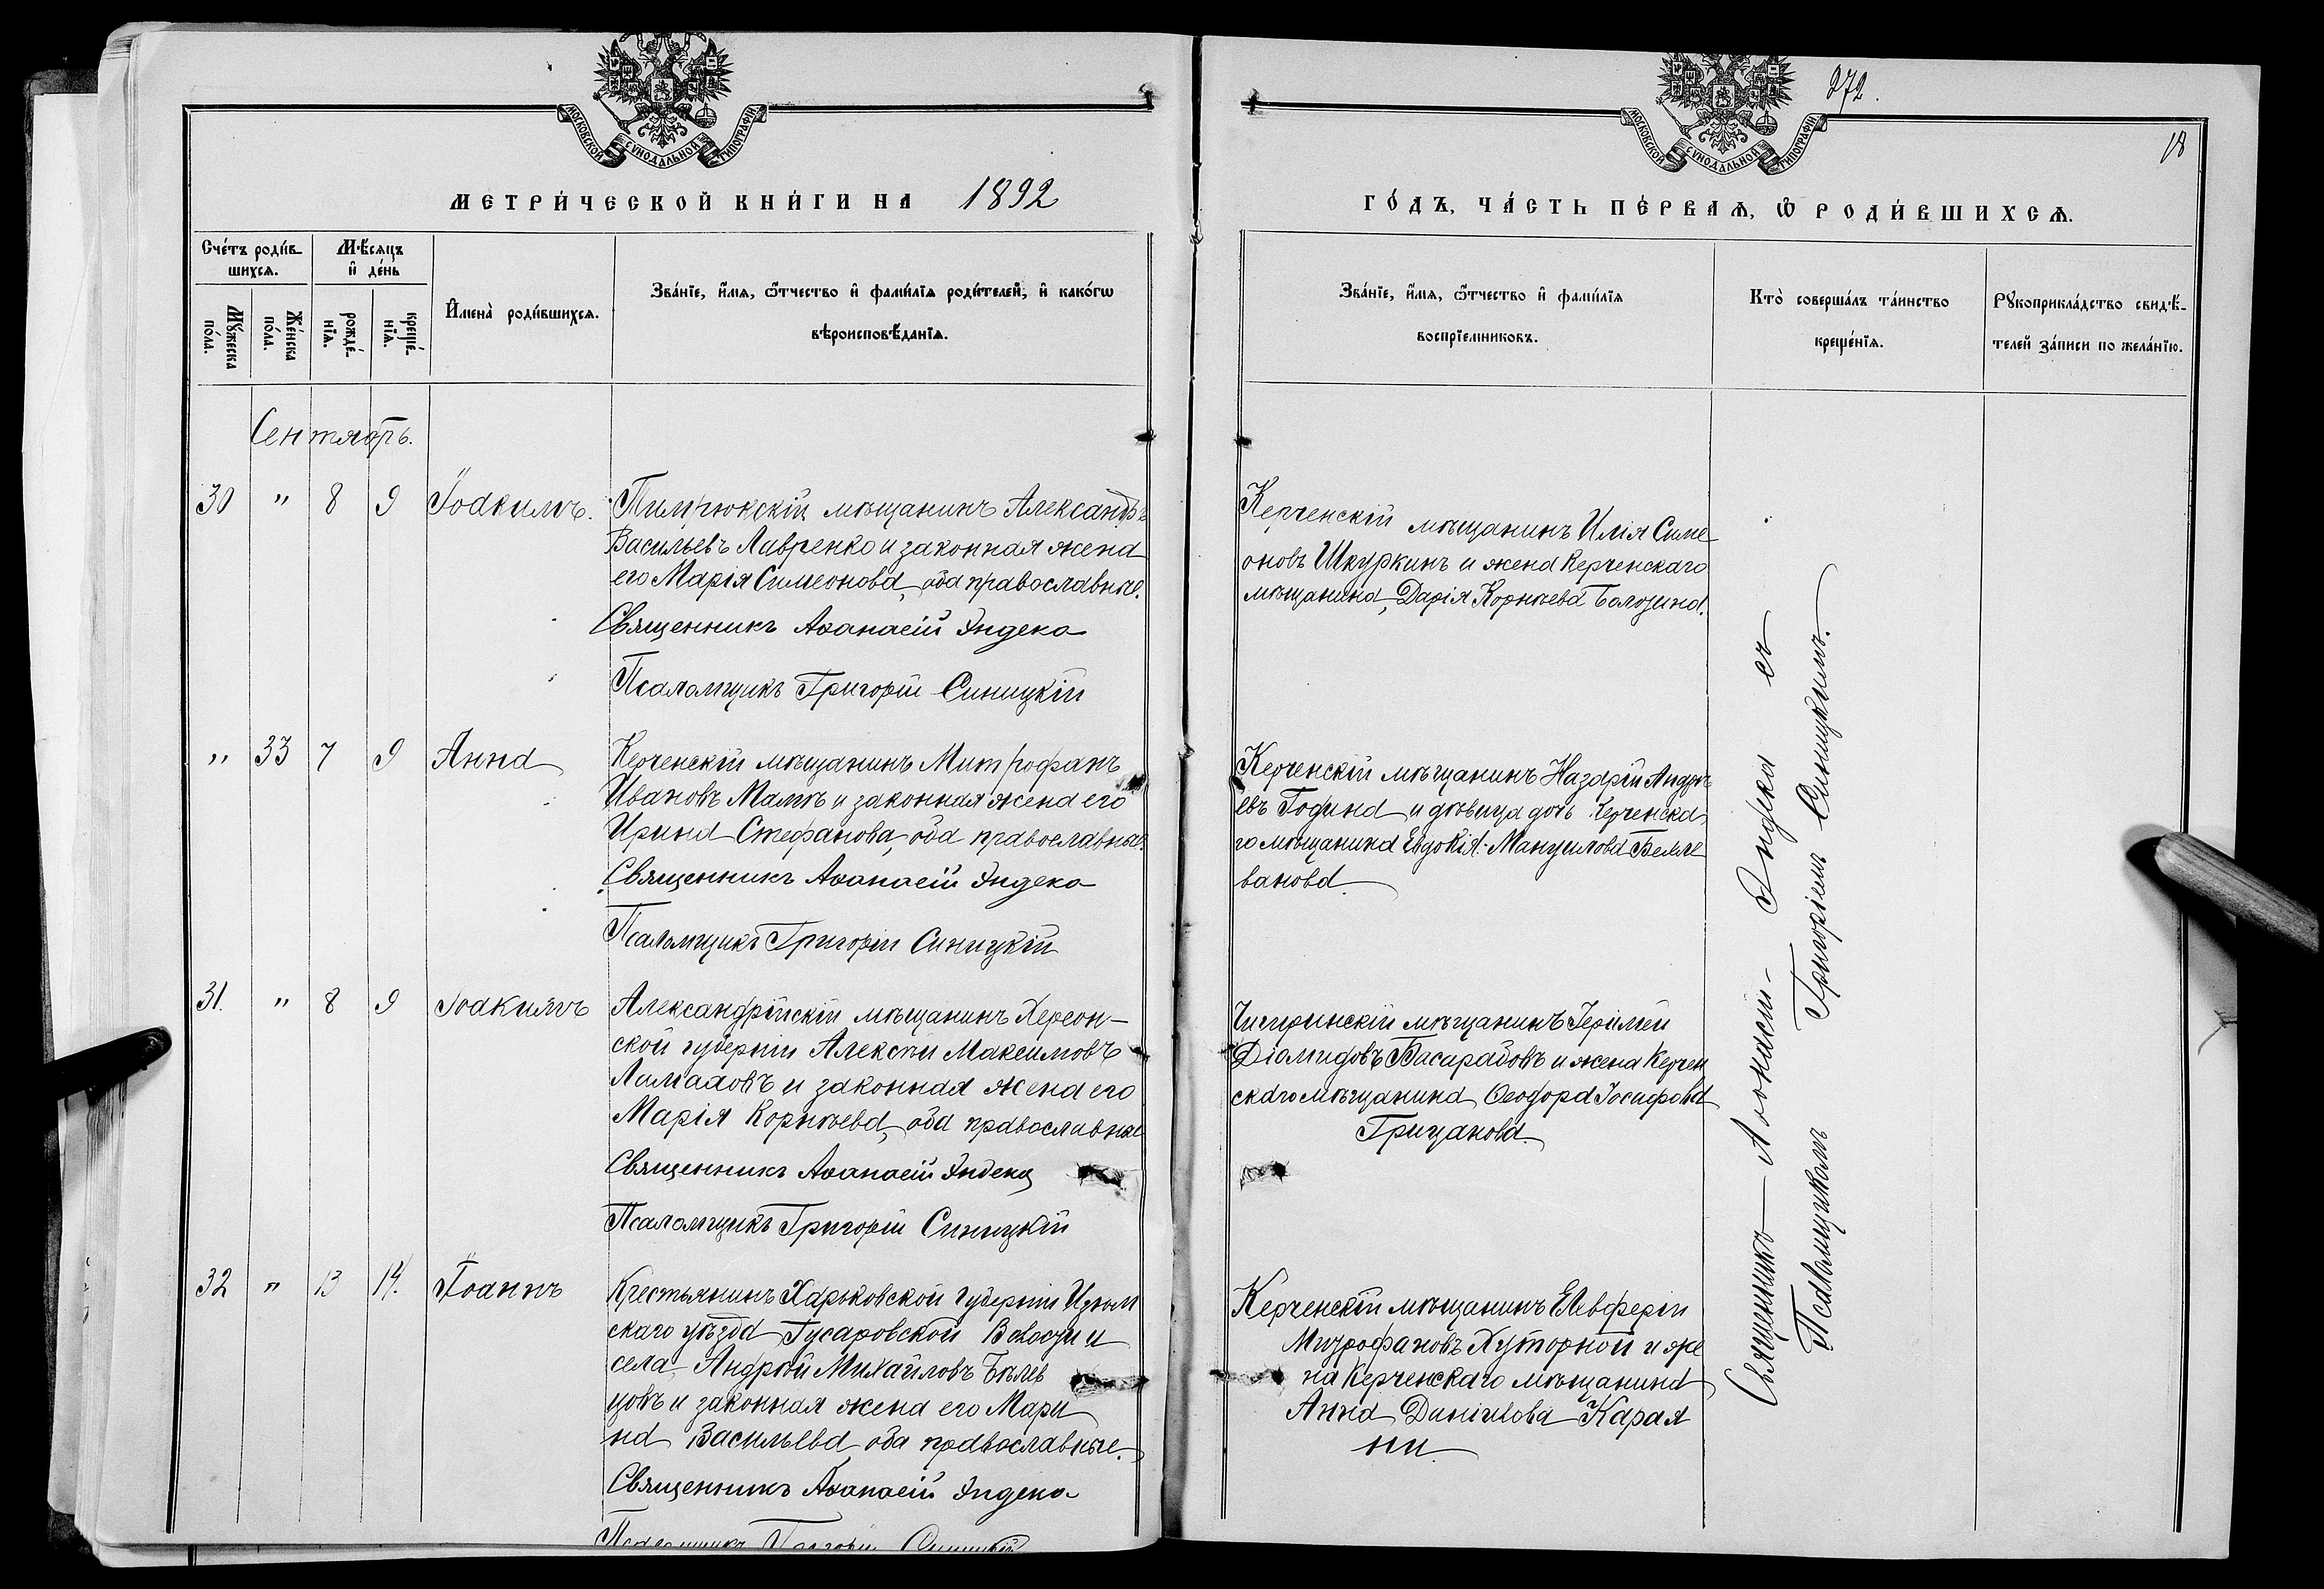 МОСКОВСКОЙ СѴНОДАЛЬНОЙ ТИПОГРАФІИ
МЕТРИ́ЧЕСКОЙ КНИ́ГИ НА 1892
Сче́тъ роди́в-
шихсѧ.
Мѣ́сѧцъ
и҆ де́нь
Мꙋ́жеска
по́ла.
Же́нска
по́ла.
рожде́-
нїѧ.
креще́-
нїѧ.
И҆мена̀ роди́вшихсѧ.
Зва́нїе, и҆́мѧ, ѻ҆́тчество и҆ фами́лїѧ роди́телей, и҆ како́гѡ
вѣроисповѣ́данїѧ.
Сентябрь.
30 " 8 9 Іоакимъ.
Темрюкскій мѣщанинъ Александръ
Васильевъ Лавренко и законная жена
его Марія Симеонова, оба православные.
Священникъ Аѳанасій Эндека
Псаломщикъ Григорій Синицкій
" 33 7 9 Анна
Керченскій мѣщанинъ Митрофанъ
Ивановъ Малѣ и законная жена его
Ирина Стефанова, оба православные.
Священникъ Аѳанасій Эндека
Псаломщикъ Григорій Синицкій
31. " 8 9 Іоакимъ
Александрійскій мѣщанинъ Херсон-
ской губерніи Алексѣй Максимовъ
и законная жена его
Марія Корнѣева, оба православные
Священникъ Аѳанасій Эндека
Псаломщикъ Григорій Синицкій
32 " 13 14. Іоаннъ
Крестьянинъ Харьковской губерніи Изюм
скаго уѣзда Гусаровской Волости и
села, Андрей Михайловъ Бѣлев
цовъ и законная жена его Мари
на Васильева оба православные.
Священникъ Аѳанасій Эндека
Псаломщикъ Григорій Синицкій
МОСКОВСКОЙ СѴНОДАЛЬНОЙ ТИПОГРАФІИ
272.
18
ГО́ДЪ, ЧА́СТЬ ПЕ́РВАѦ, Ѡ҆ РОДИ́ВШИХСѦ.
Зва́нїе, и҆́мѧ, ѻ҆́тчество и҆ фами́лїѧ
воспрїемниковъ.
Кто̀ соверша́лъ та́инство
креще́нїѧ.
Рꙋкоприкла́дство свидѣ́-
телей за́писи по жела́нїю.
Керченскій мѣщанинъ Илія Симе
оновъ Шкуркинъ и жена Керченскаго
мѣщанина, Дарія Корнѣева
Керченскій мѣщанинъ Назарій Андре
евъ Година и дѣвица дочь Керченска
го мѣщанина Евдокія Мануилова Белле
ванова.
мѣщанинъ Іеремій
Діамидовъ Басарабовъ и жена Керчен
скаго мѣщанина Ѳеодора Іосифова
Грицанова.
Керченскій мѣщанинъ Елевферій
Митрофановъ Хуторной и же
на Керченскаго мѣщанина
Анна Даніилова Карая
ни.
Священникъ — Аѳонасій — Эндека съ
Псаломщикомъ Григоріемъ Синицкимъ.